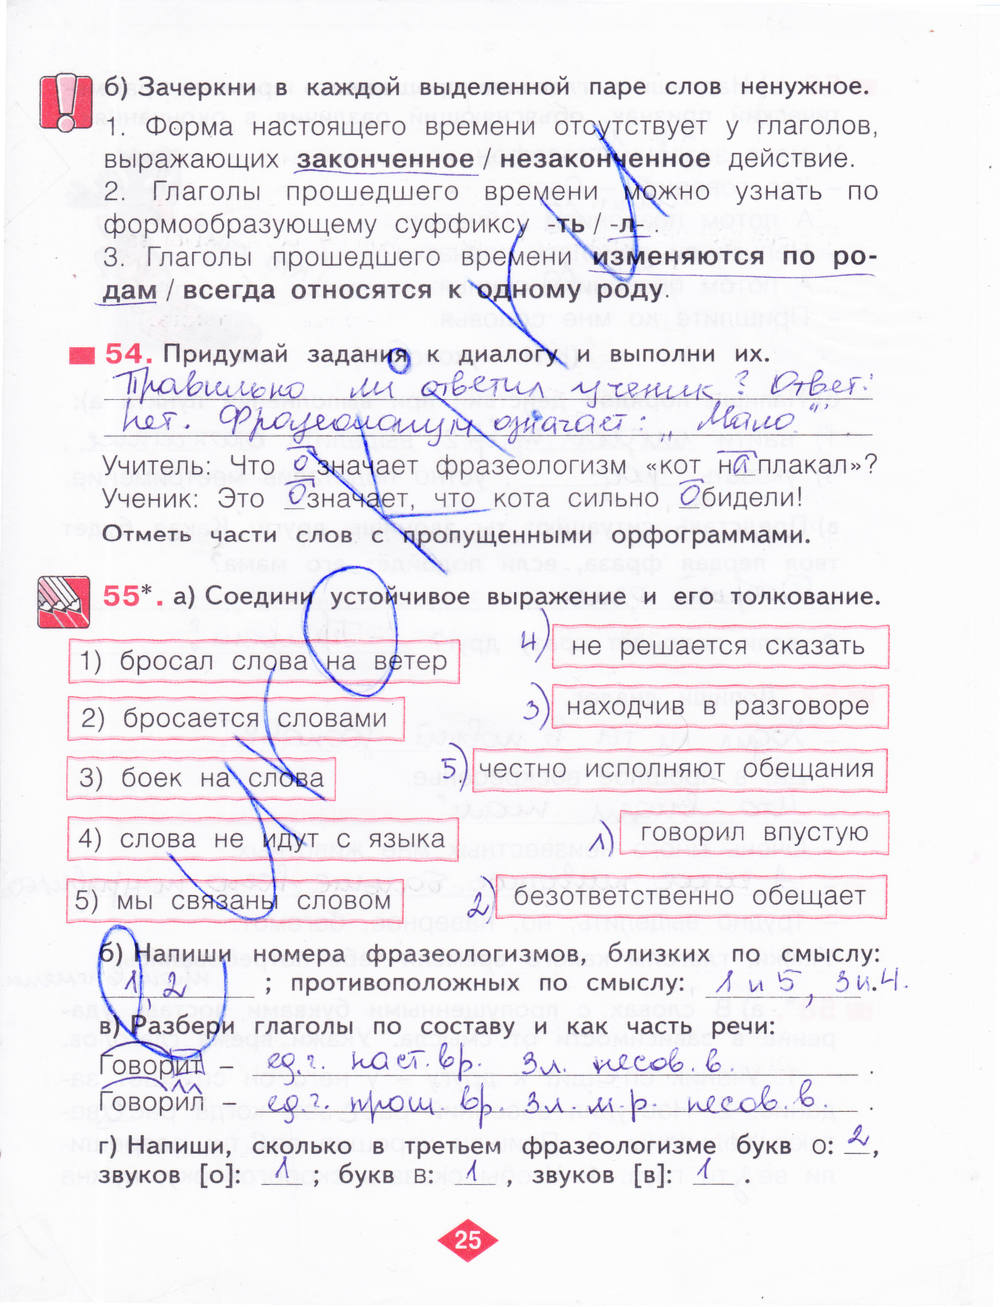 б) Зачеркни в каждой выделенной паре слов ненужное.
1. Форма настоящего времени отсутствует у глаголов,
выражающих законченное / незаконченное действие.
2. Глаголы прошедшего времени можно узнать по
формообразующему суффиксу -ть / -л- .
3. Глаголы прошедшего времени изменяются по ро-
дам / всегда относятся к одному роду.
54. Придумай задания к диалогу и выполни их.
Правильно ли ответил ученик? Ответ:
нет. Фразеологизм означает: „Мало".
Учитель: Что означает фразеологизм «кот наплакал»?
Ученик: Это означает, что кота сильно обидели!
Отметь части слов с пропущенными орфограммами.
55*. а) Соедини устойчивое выражение и его толкование.
1) бросал слова на ветер
4) не решается сказать
2) бросается словами
3) находчив в разговоре
3) боек на слова
5) честно исполняют обещания
4) слова не идут с языка
1) говорил впустую
5) мы связаны словом
2) безответственно обещает
б) Напиши номера фразеологизмов, близких по смыслу:
1, 2 ; противоположных по смыслу: 1 и 5, 3 и 4.
в) Разбери глаголы по составу и как часть речи:
Говорит – ед.ч. наст.вр. 3л. несов.в. .
Говорил – ед.ч. прош.вр. 3л м.р. несов.в. .
г) Напиши, сколько в третьем фразеологизме букв о: 2,
звуков [о]: 1 ; букв в: 1 , звуков [в]: 1 .
25